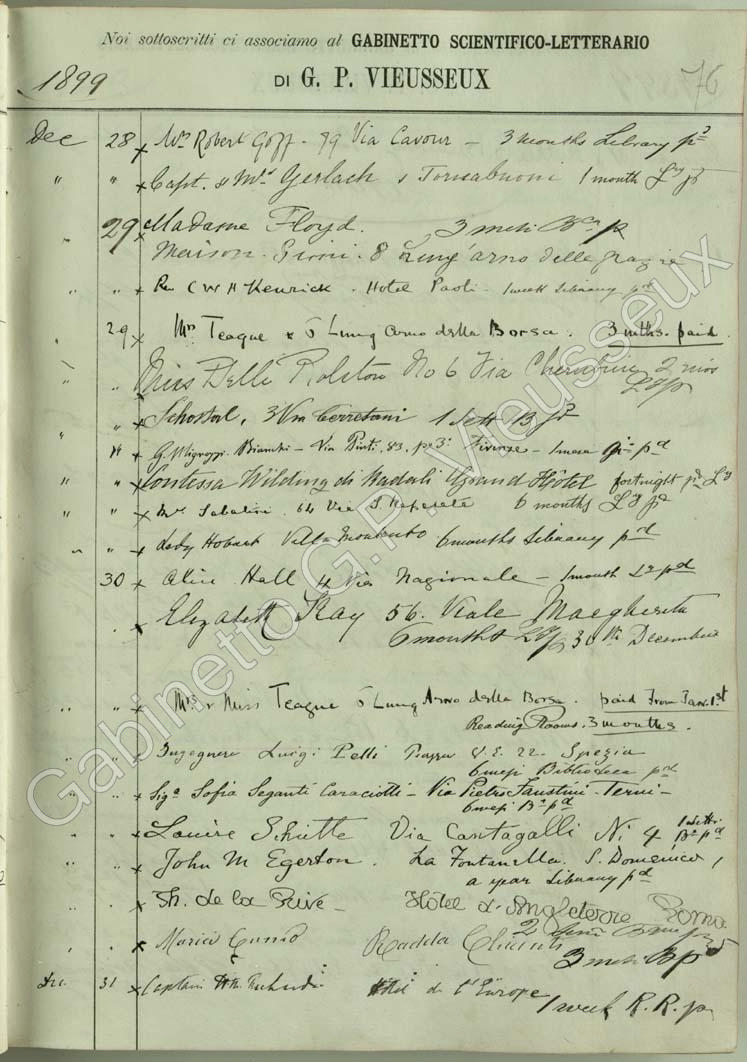 Noi sottoscritti ci associamo al GABINETTO SCIENTIFICO-LETTERARIO
1899 DI G. P. VIEUSSEUX 76
Dec 28 x Mrs Robert Goff - 89 Via Cavour - 3 months Library pd
" " x Capt. & Mrs Gerlach Tornabuoni 1 month Ly pd
29 x Madame Floyd. 3 mesi
Maison 8 Lung'arno delle Grazie
" " x Rev C W H Kenrick . Hotel Paoli - 1 week Library pd
29 x Mrs Teague 5 Lung Arno della Borsa . 3 mths. paid.
" x Miss Delle Rolston No 6 Via Cherubini 2 mos
Ly p
" x Schostal, 3 Via Cerretani 1 Sett B pd
" x G. Bianchi - Via Pinti, 83. po 3o Firenze - 1 mese pd
" " x Contessa Wilding di Radali Grand Hôtel fortnight pd Ly
" " x Mrs Sabatini 64 Via S. Reparata 6 months Ly pd
" x Lady Hobart Villa Montauto 6 months Library pd
30 x Alice Hall 4 Via Nazionale - 1 month Ly pd
" x Elizabeth Kay 56. Viale Margherita
6 months Ly p 30th December
" " x Mrs & Miss Teague 5 Lung Arno della Borsa . paid From Jan. 1st
Reading Rooms. 3 months.
" " x Ingegnere Luigi Pelli Piazza V. E. 22 - Spezia
6 mesi Biblioteca pd
" " x Siga Sofia Seganti Caraciotti - Via Pietro Faustini - Terni -
6 mesi Ba pd
" " x Louise Schütte Via Cantagalli No 4 1 sett. Ba pd
" " x John M Egerton . La Fontanella. S. Domenico,
a year Library pd
" " x Th. de la Rive - Hôtel d'Angleterre Roma
2
" x Maria Radda Chianti
3 mesi B p
Dec. 31 x Captain Hotel de l'Europe
1 week R. R. p
Gabinetto G.P. Vieusseux